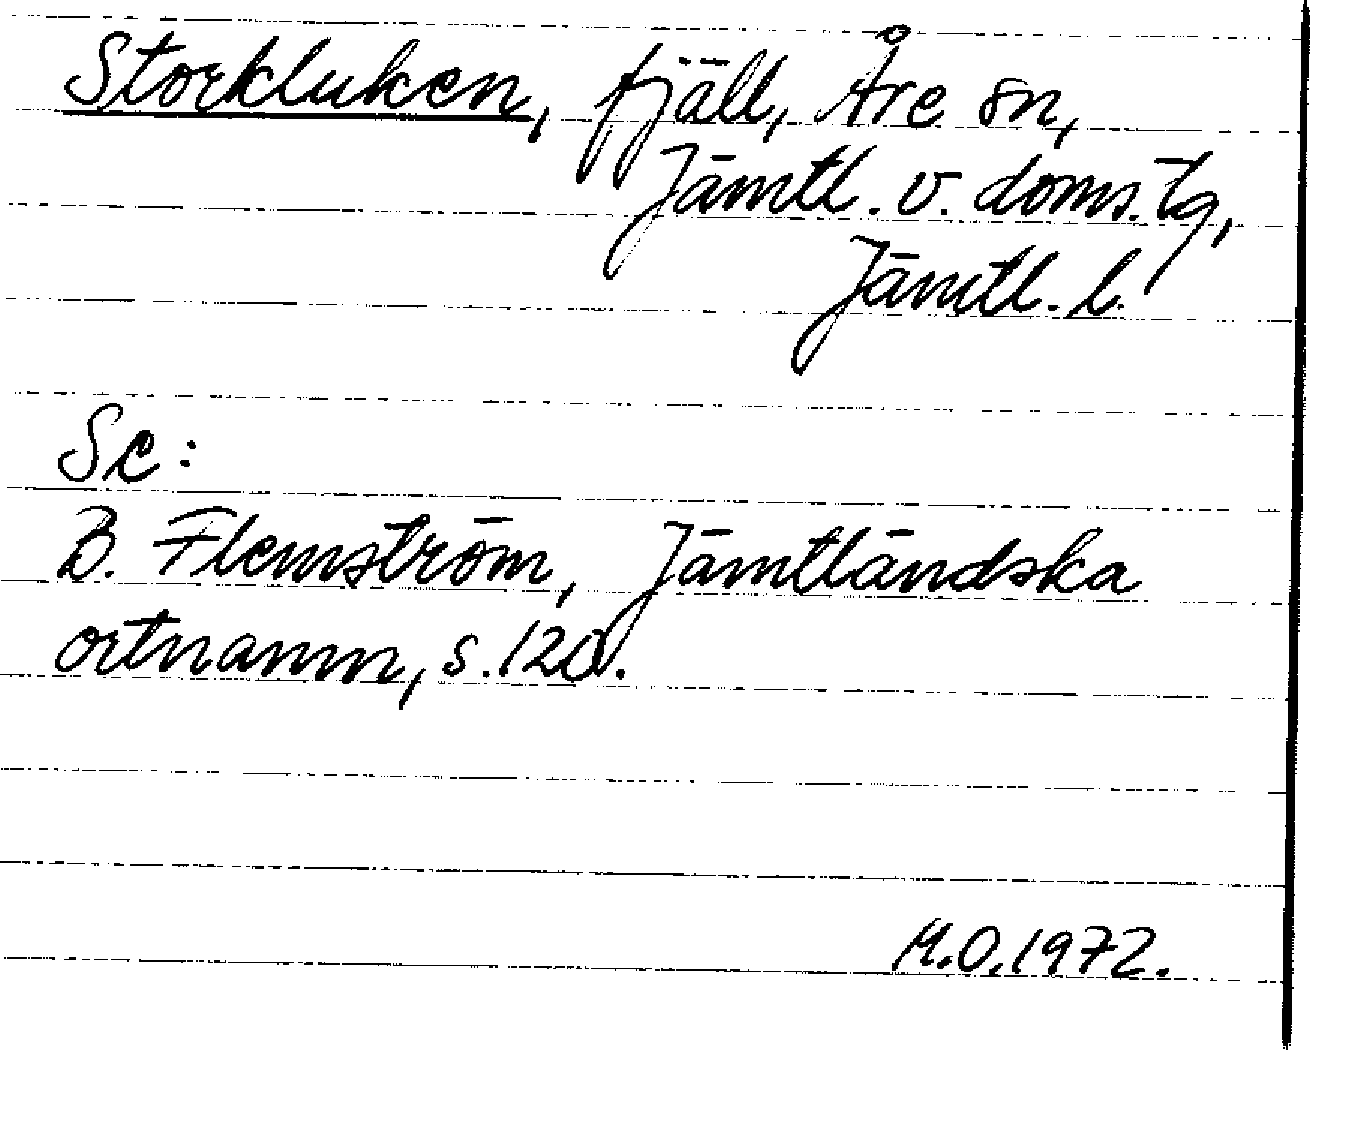 Storkluken, fjäll, Åre sn,
Jämtl. v. doms. tg,
Jämtl. l.
Se:
B. Flemström, Jämtländska
ortnamn, s. 120.
M.O. 1972.